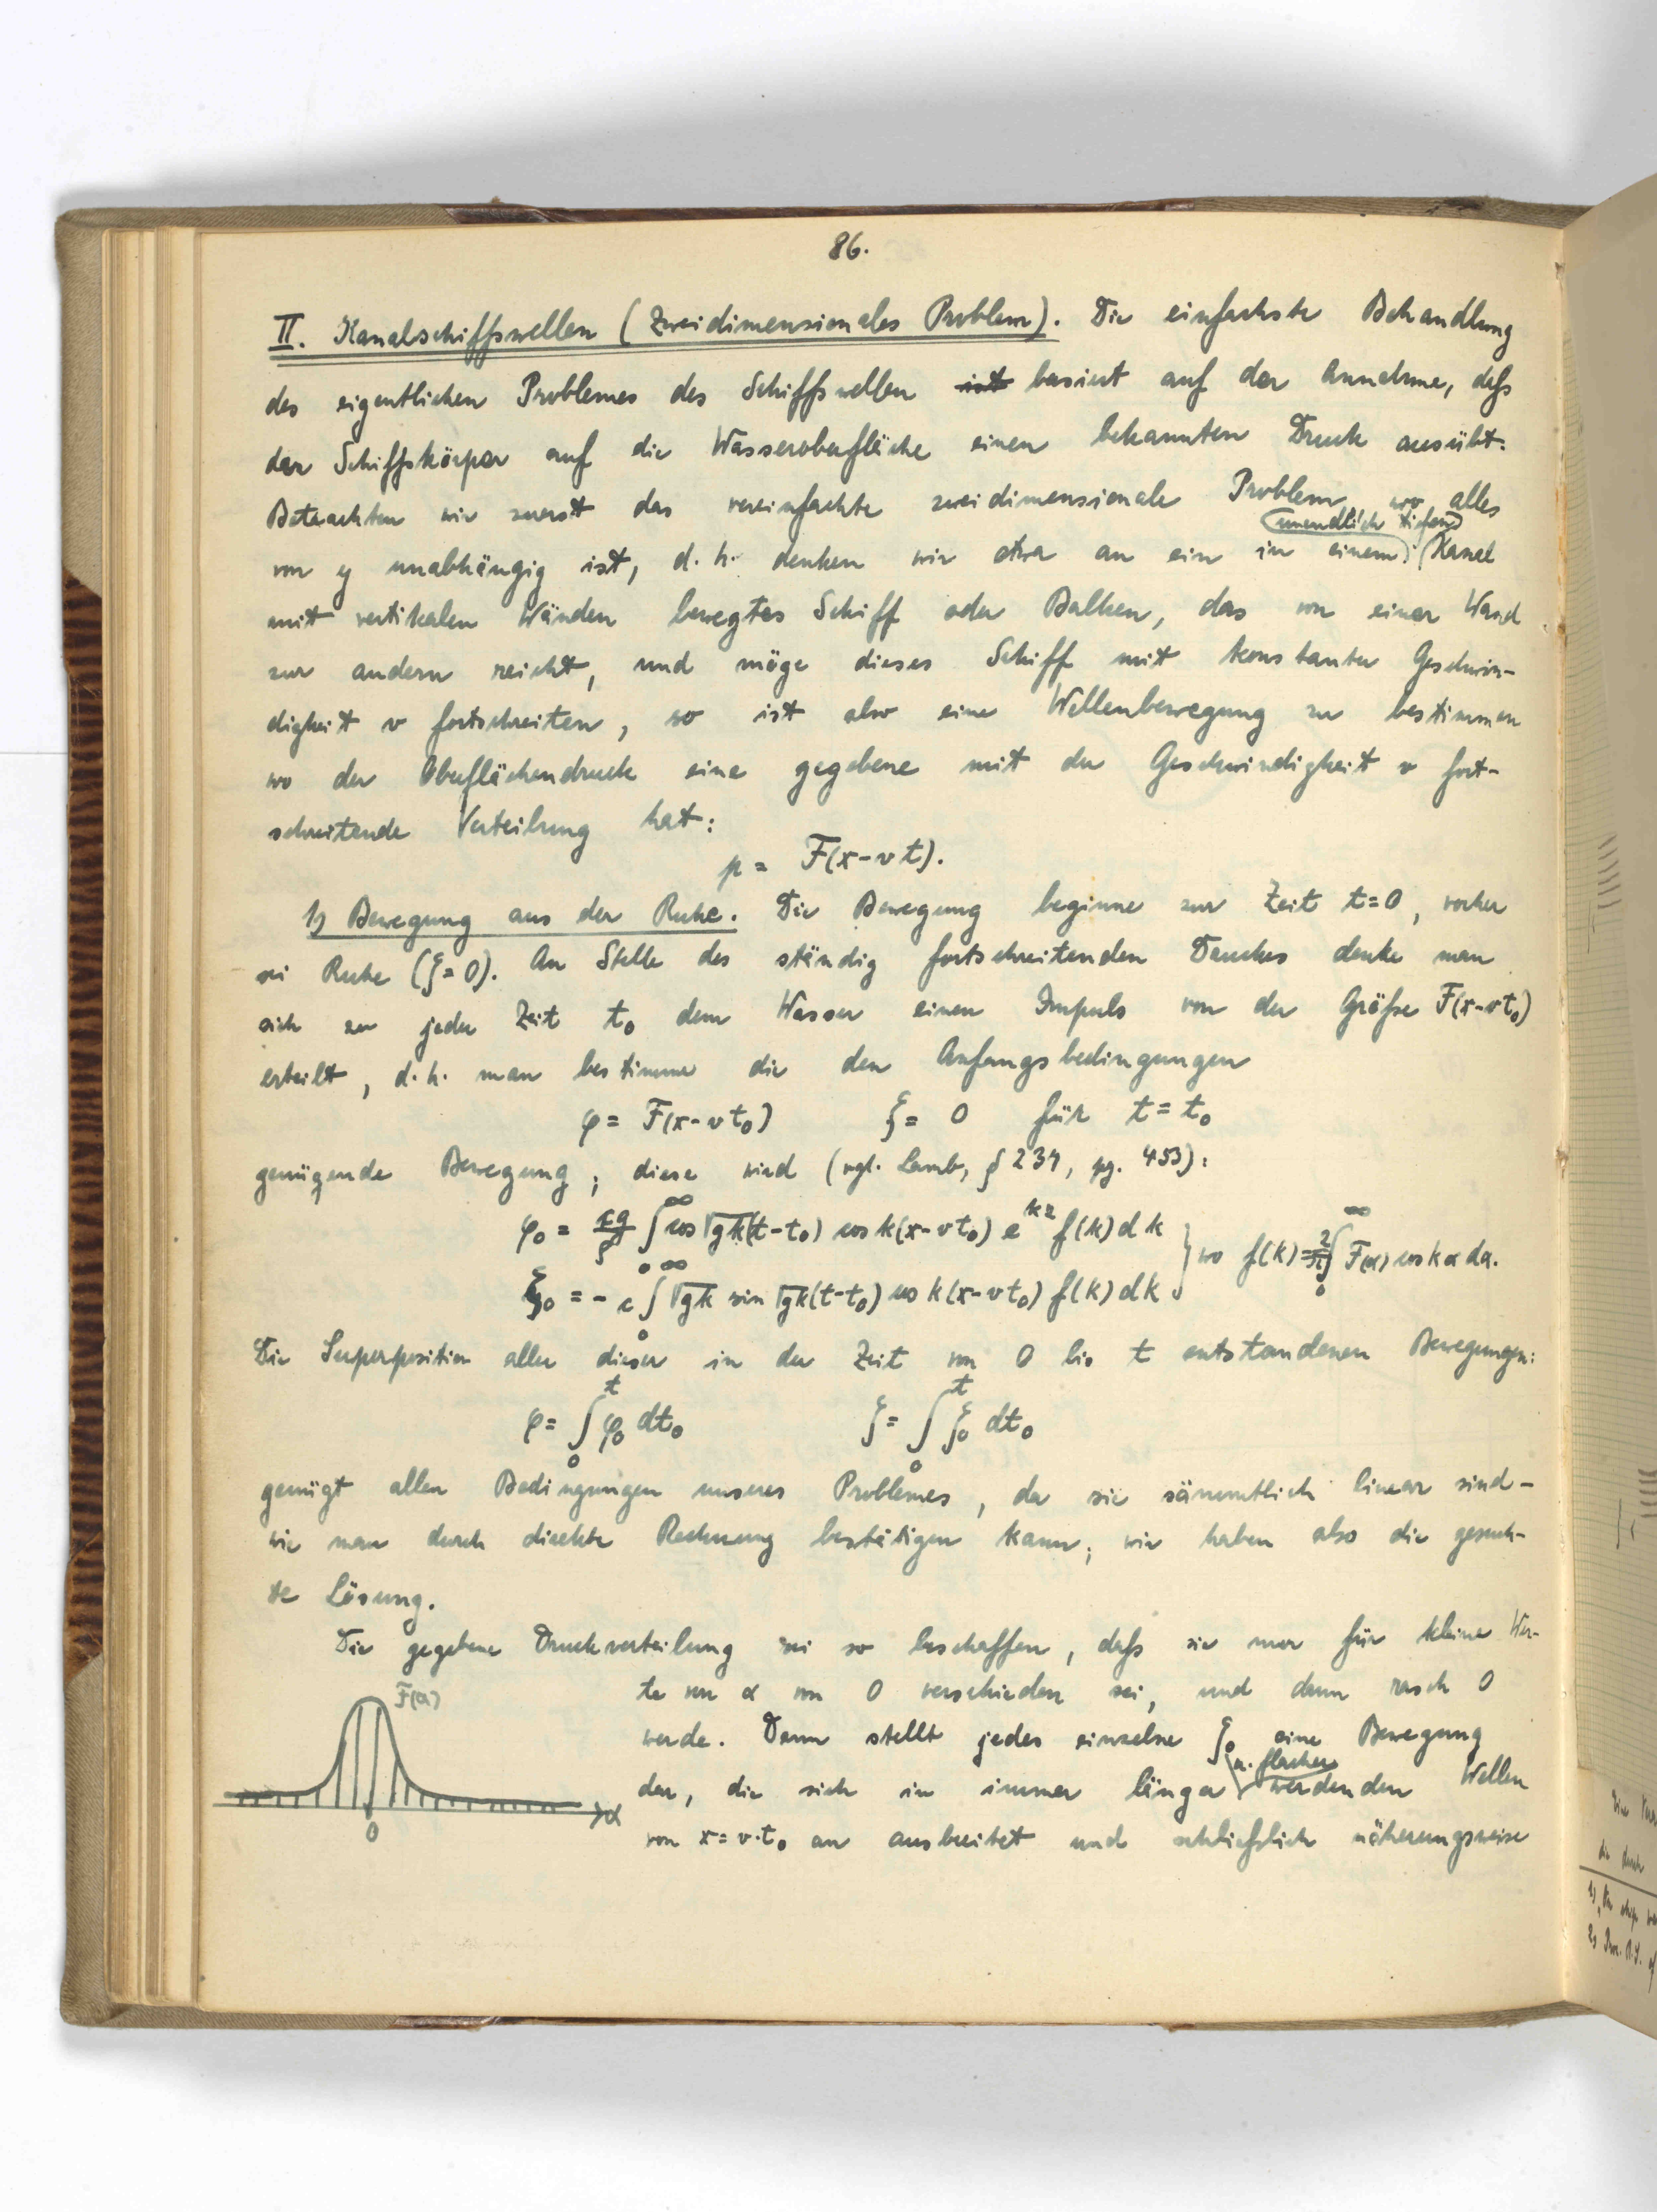 86.
II. Kanalschiffswellen (Zweidimensionales Problem). Die einfachste Behandlung
des eigentlichen Problemes des Schiffswellen ist basiert auf der Annahme, daß
der Schiffskörper auf die Wasseroberfläche einen bekannten Druck ausübt.
Betrachten wir zuerst das vereinfachte zweidimensionale Problem, wo alles
(unendlich tiefen)
von y unabhängig ist, d. h. denken wir etwa an ein in einem Kanal
mit vertikalen Wänden bewegtes Schiff oder Balken, das von einer Wand
zur andern reicht, und möge dieses Schiff mit konstanter Geschwin-
digkeit v fortschreiten, so ist also eine Wellenbewegung zu bestimmen
wo der Oberflächendruck eine gegebene mit der Geschwindigkeit v fort-
schreitende Verteilung hat:
p = F(x-vt).
1) Bewegung aus der Ruhe. Die Bewegung beginne zur Zeit t=0, vorher
sei Ruhe (ζ=0). An Stelle des ständig fortschreitenden Druckes denke man
sich zu jeder Zeit t₀ dem Wasser einen Impuls von der Größe F(x-vt₀)
erteilt, d. h. man bestimme die den Anfangsbedingungen
φ = F(x-vt₀) ζ = 0 für t = t₀
genügende Bewegung; diese wird (vgl. Lamb, § 239, pg. 453):
φ₀ = ∫₀^∞ cos √gk(t-t₀) cos k(x-vt₀) e^{kz} f(k) dk
ζ₀ = - c ∫₀^∞ √gk sin √gk(t-t₀) cos k(x-vt₀) f(k) dk } wo f(k) = 2/π ∫₀^∞ F(α) cos kα dα.
Die Superposition aller dieser in der Zeit von 0 bis t entstandenen Bewegungen:
φ = ∫₀^t φ₀ dt₀ ζ = ∫₀^t ζ₀ dt₀
genügt allen Bedingungen unseres Problemes, da sie sämmtlich linear sind -
wie man durch direkte Rechnung bestätigen kann; wir haben also die gesuch-
te Lösung.
Die gegebene Druckverteilung sei so beschaffen, daß sie nur für kleine Wer-
te von α von 0 verschieden sei, und dann rasch 0
werde. Dann stellt jedes einzelne ζ₀ eine Bewegung
u. flacher
dar, die sich in immer länger werdenden Wellen
von x = v·t₀ an ausbreitet und schließlich näherungsweise
F(α)
0
α